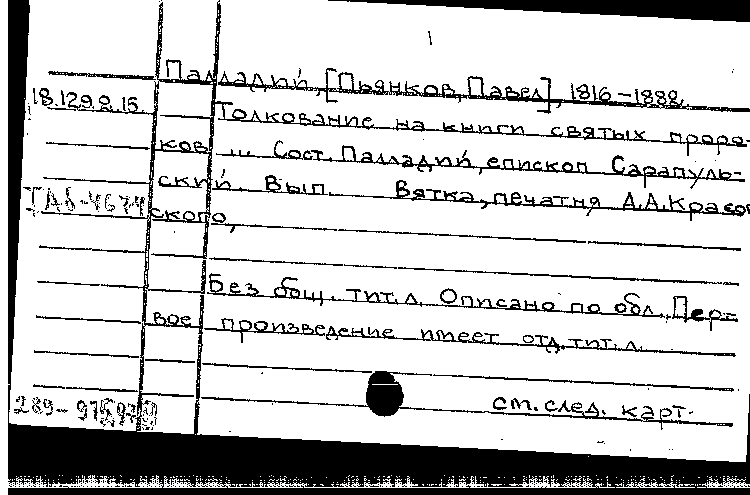 Палладий, [Пьянков, Павел], 1816-1888.
18.129.2.15.
Толкование на книги святых проро-
ков ... Сост. Палладий, епископ Сарапуль-
ский. Вып. Вятка, печатня А.А.Красов
ского,
Без общ. тит.л. Описано по обл. Пер-
вое произведение имеет отд. тит.л.
см. след. карт.